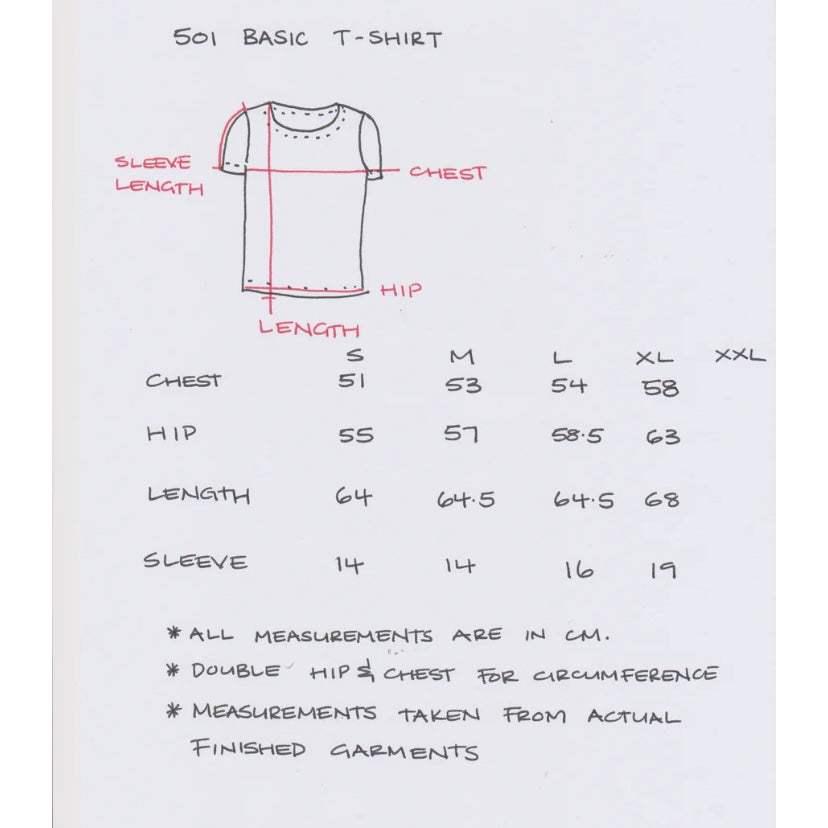 501 BASIC T-SHIRT
SLEEVE
LENGTH
CHEST
HIP
LENGTH
S M L XL XXL
CHEST 51 53 54 58
HIP 55 57 58.5 63
LENGTH 64 64.5 64.5 68
SLEEVE 14 14 16 19
* ALL MEASUREMENTS ARE IN CM.
* DOUBLE HIP & CHEST FOR CIRCUMFERENCE
* MEASUREMENTS TAKEN FROM ACTUAL
FINISHED GARMENTS